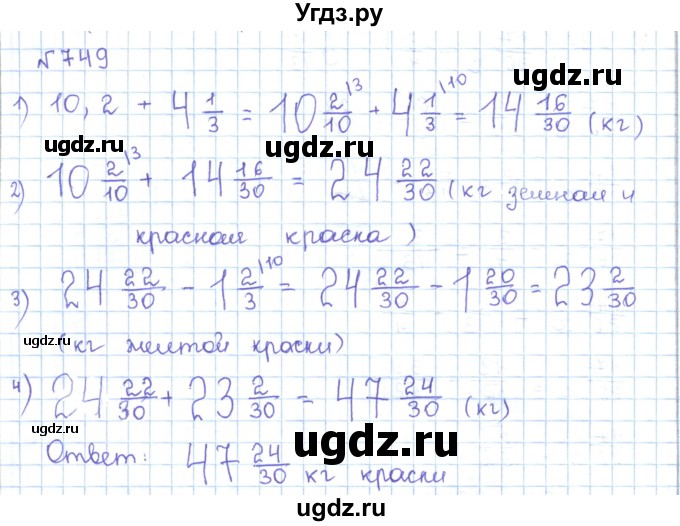 Угдз.ру
№749
1) 10,2 + 4 1/3 = 10 2/10 \3 + 4 1/3 \10 = 14 16/30 (кг)
2) 10 2/10 \3 + 14 16/30 = 24 22/30 (кг зеленая и
красная краска)
3) 24 22/30 - 1 2/3 \10 = 24 22/30 - 1 20/30 = 23 2/30
(кг желтой краски)
4) 24 22/30 + 23 2/30 = 47 24/30 (кг)
Ответ: 47 24/30 кг краски
ugdz.ru
ugdz.ru
ugdz.ru
ugdz.ru
ugdz.ru
ugdz.ru
ugdz.ru
ugdz.ru
ugdz.ru
ugdz.ru